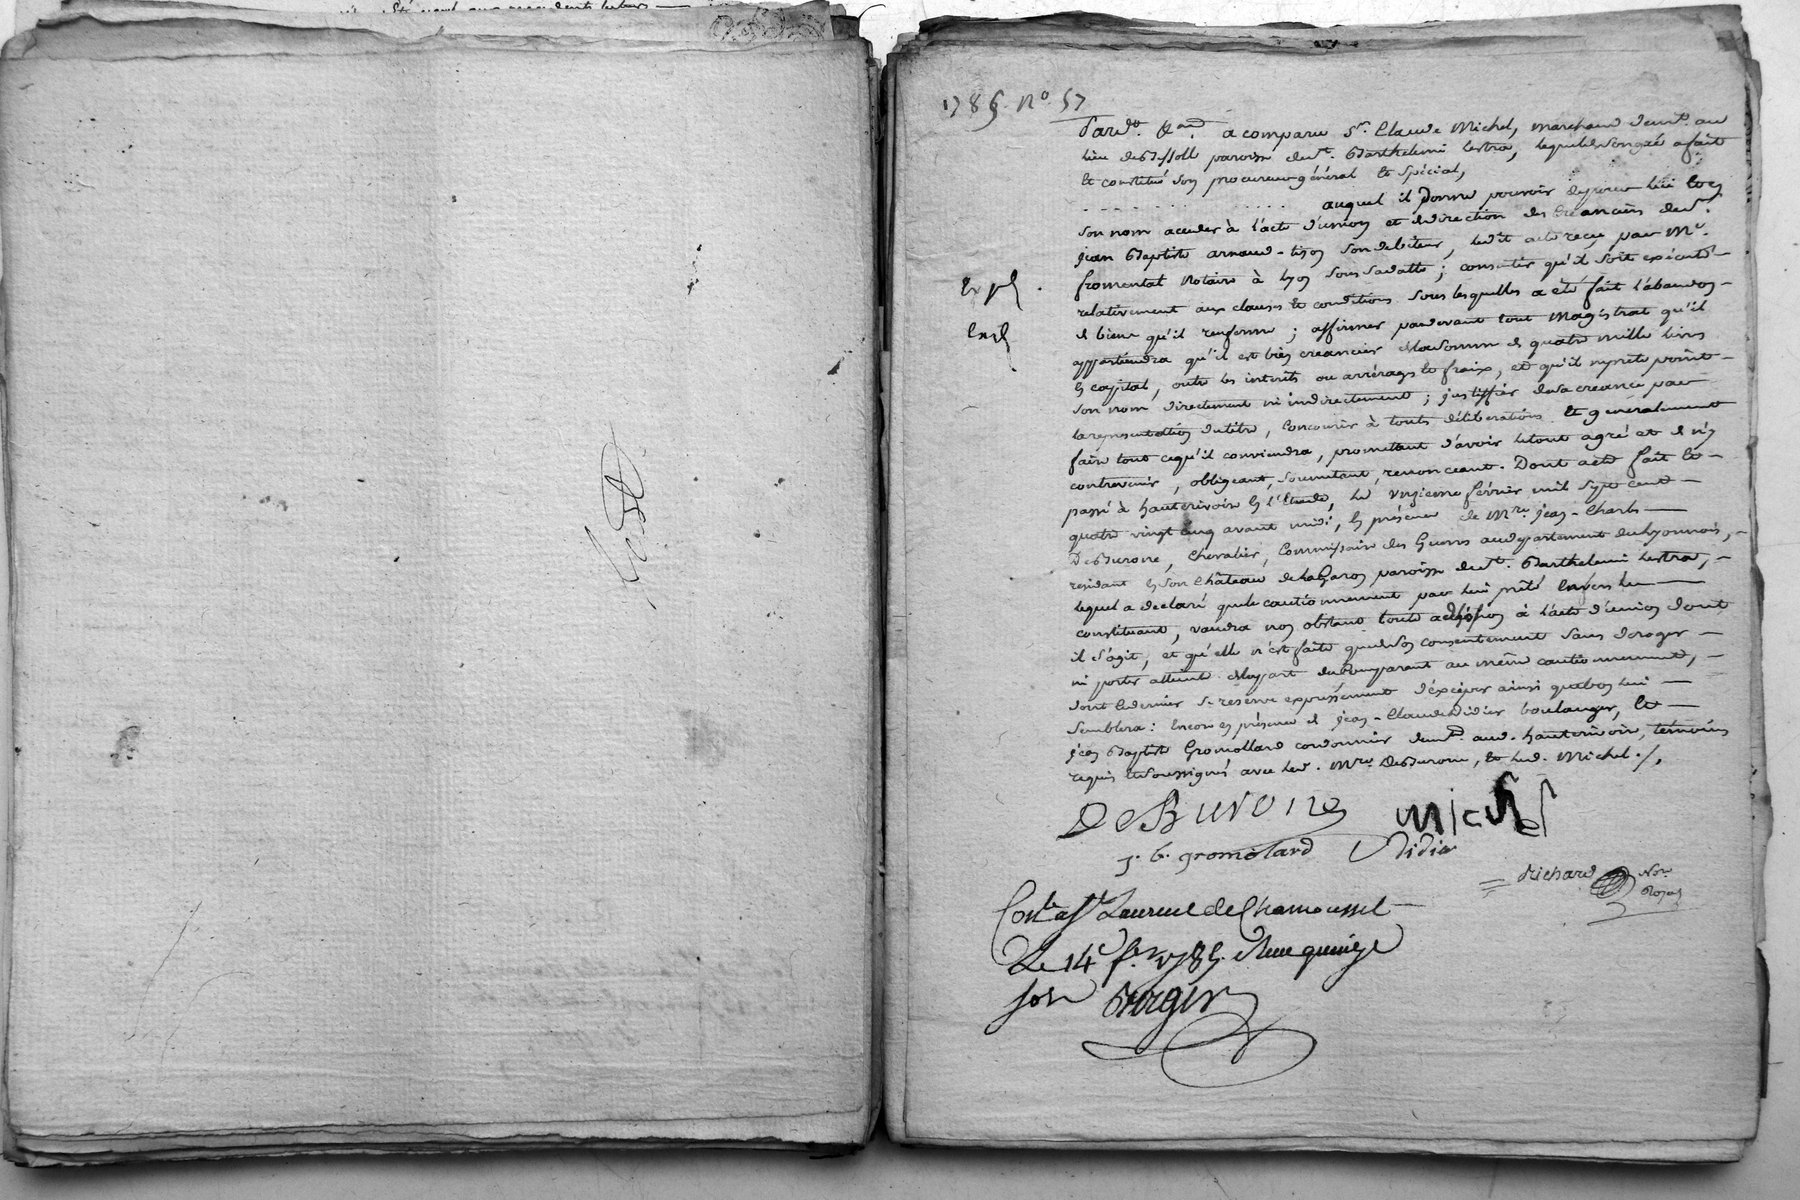 1785. No. 57
Pardt. &amp;an. a comparu Sr. Claude Michel, marchand demt. au
lieu de paroisse de St. Barthelemi lestra, lequel de son gré a fait
et constitué son procureur général et spécial,
. . . . . . . . . . auquel il donne pouvoir de pour lui et en
son nom acceder à l'acte d'union et de direction des créanciers de Sr.
jean Baptiste arnaud-tizon son debiteur, ledit acte reçu par Me.
fromental Notaire à lyon sous sa datte; consentir qu'il soit exécuté
relativement aux clauses et conditions sous lesquelles a été fait l'abandon
de biens qu'il renferme; affirmer pardevant tout magistrat qu'il
appartiendra qu'il est bien creancier de la somme de quatre mille livres
en capital, outre les interêts ou arrérages et fraix, et qu'il ne prete point
son nom directement ni indirectement; justiffier de sa creance par
la representation du titre, concourir à toutes délibérations et généralement
faire tout ce qu'il conviendra, promettant d'avoir le tout agré et de n'y
contrevenir, obligeant, soumettant, renonceant. Dont acte fait et
passé à hauterivoire en l'Etude, le onzieme février mil sept cent
quatre vingt cinq avant midi, en présence de Mre. jean-Charles
DeBurone, Chevalier, Commissaire des Guerres au departement du lyonnois,
residant en son Château de paroisse de St. Barthelemi lestra,
lequel a declaré que le cautionnement par lui prêté envers le
constituant, vaudra non obstant toute adhésion à l'acte d'union dont
il s'agit, et qu'elle n'est faite que de son consentement sans deroger
ni porter atteinte de la part du Comparant au même cautionnement,
dont ce dernier se reserve expressément d'exciper ainsi que bon lui
semblera: Encore en présence de jean-Claude Didier boulanger, et
jean Baptiste Gromollard cordonnier demts. aud. hauterivoire, témoins
requis et soussignés avec led. Mre. DeBurone, et led. Michel ./.
DeBurone Michel
j. b. gromolard Didier
Richard Nore. Royal
Conle. a St. Laurent de Chamousset
Le 14e. fer. 1785. Reçu quinze
sols Berger